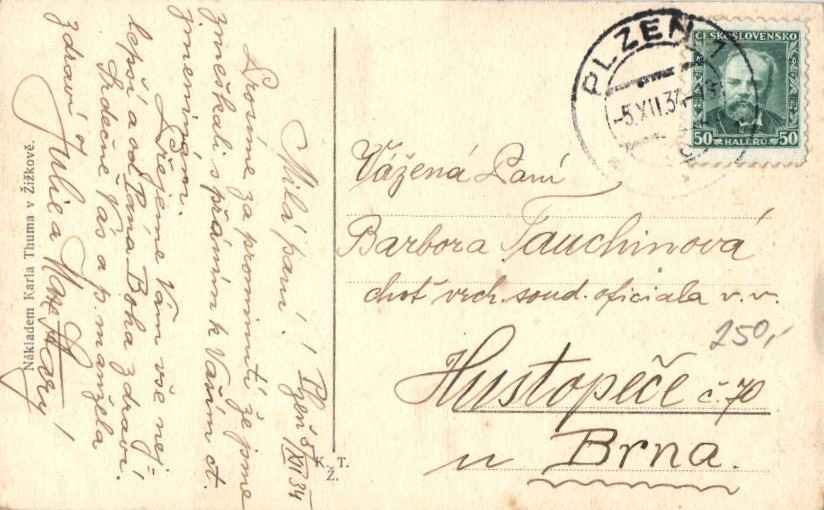 Milá paní! Plzeň 5/XII 34
Prosíme za prominutí že jsme
zmeškali s přáním k Vašim ct.
jmeninám.
Přejeme Vám vše nej-
lepší a od Pána Boha zdraví.
Srdečně Vás a p. manžela
zdraví
Julie a
Nákladem Karla Thuma v Žižkově.
K. T.
Ž.
PLZEŇ 1
-5.XII.34
ČESKOSLOVENSKO
50 HALÉŘŮ 50
Vážená Paní
Barbora Tauchinová
choť vrch. soud. oficiala v. v.
250,-
Hustopeče č. 70
u Brna.